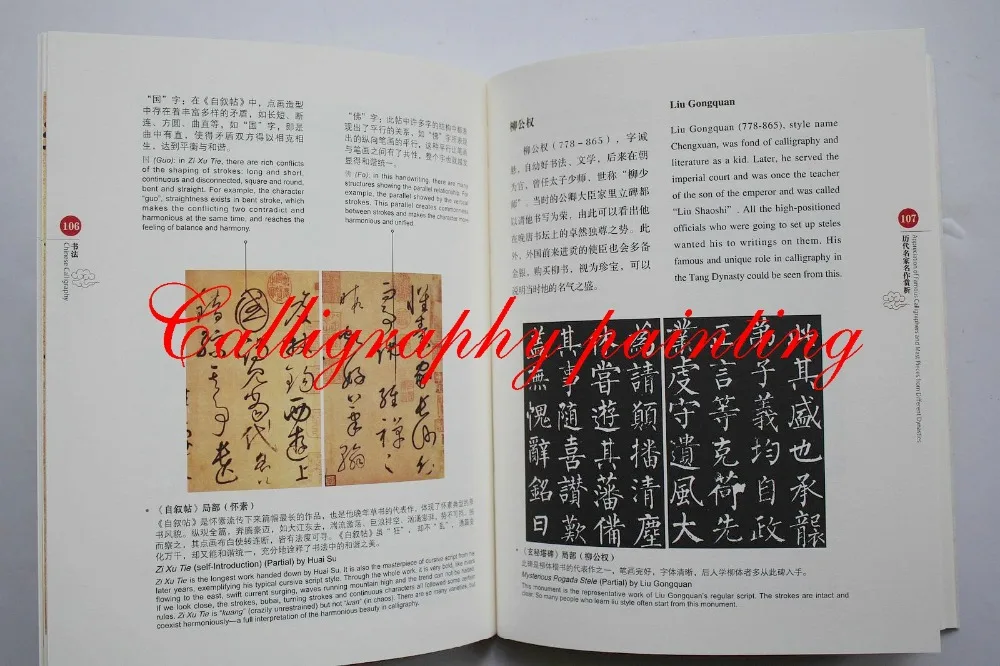 "国"字：在《自叙帖》中，点画造型
中存在着丰富多样的矛盾，如长短、断
连、方圆、曲直等，如"国"字，即是
曲中有直，使得矛盾双方得以相克相
生，达到平衡与和谐。
国 (Guo): in Zi Xu Tie, there are rich conflicts
of the shaping of strokes: long and short,
continuous and disconnected, square and round,
bent and straight. For example, the character
"guo", straightness exists in bent stroke, which
makes the conflicting two contradict and
harmonious at the same time, and reaches the
feeling of balance and harmony.
"佛"字：此帖中许多字的结构中都展
现出了平行的关系，如"佛"字所表现
出的纵向笔画的平行，这种平行让笔画
与笔画之间有了共性，整个字也就越发
显得和谐统一。
佛 (Fo): in this handwriting, there are many
structures showing the parallel relationship. For
example, the parallel showed by the vertical
strokes. This parallel creates commonness
between strokes and makes the character more
harmonious and unified.
106
书法
Chinese Calligraphy
《自叙帖》局部（怀素）
《自叙帖》是怀素流传下来篇幅最长的作品，也是他晚年草书的代表作，体现了怀素典型的草
书风貌。纵观全篇，奔腾豪迈，如大江东去，湍流激荡，巨浪排空，汹涌澎湃，势不可挡。细
而察之，其点画布白使转连断，皆有法度可寻。《自叙帖》虽"狂"，却不"乱"，
化万千，却又能和谐统一，充分地诠释了书法中的和谐之美。
Zi Xu Tie (self-Introduction) (Partial) by Huai Su
Zi Xu Tie is the longest work handed down by Huai Su. It is also the masterpiece of cursive script from the
later years, exemplifying his typical cursive script style. Through the whole work, it is very bold, like rivers
flowing to the east, swift current surging, waves running mountain high and the trend can not be halted.
If we look close, the strokes, bubai, turning strokes and continuous characters all followed some certain
rules. Zi Xu Tie is "kuang" (crazily unrestrained) but not "luan" (in chaos). There are so many variations, but
coexist harmoniously—a full interpretation of the harmonious beauty in calligraphy.
Calligraphy painting
柳公权
柳公权（778－865），字诚
悬，自幼好书法、文学，后来在朝
为官，曾任太子少师，世称"柳少
师"。当时的公卿大臣家里立碑都
以请他书写为荣，由此可以看出他
在晚唐书坛上的卓然独尊之势。此
外，外国前来进贡的使臣也会多备
金银，购买柳书，视为珍宝，可以
说明当时他的名气之盛。
Liu Gongquan
Liu Gongquan (778-865), style name
Chengxuan, was fond of calligraphy and
literature as a kid. Later, he served the
imperial court and was once the teacher
of the son of the emperor and was called
"Liu Shaoshi". All the high-positioned
officials who were going to set up steles
wanted his to writings on them. His
famous and unique role in calligraphy in
the Tang Dynasty could be seen from this.
107
历代名家名作赏析
Appreciation of Famous Calligraphers and Master Pieces from Different Dynasties
此其盛也承袭
弟子义均自政
正言等克荷先
業虔守遺風大
為請顛播清塵
休嘗遊其藩備
其事隨喜讚歎
蓋無愧辭銘曰
《玄秘塔碑》局部（柳公权）
此碑是柳体楷书的代表作之一，笔画完好，字体清晰，后人学柳体者多从此碑入手。
Mysterious Pogada Stele (Partial) by Liu Gongquan
This monument is the representative work of Liu Gongquan's regular script. The strokes are intact and
clear. So many people who learn liu style often start from this monument.